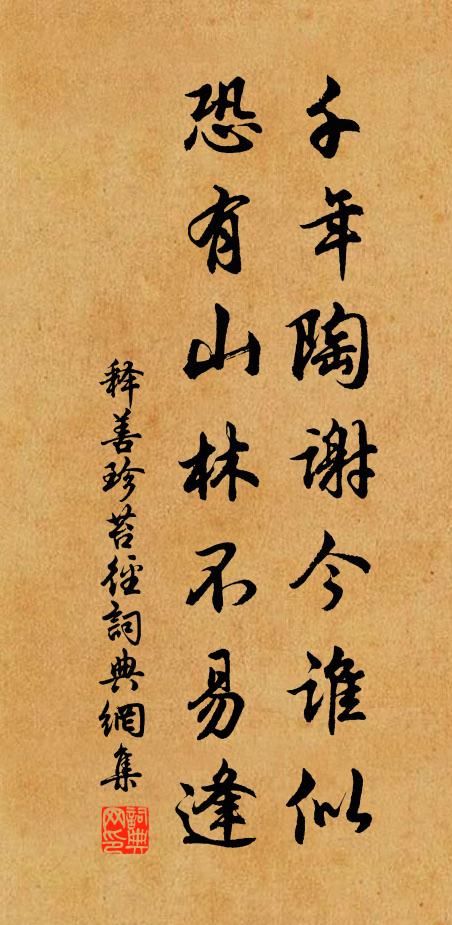 千年陶谢今谁似
恐有山林不易逢
释善珍苔径詞典網集
詞典网印